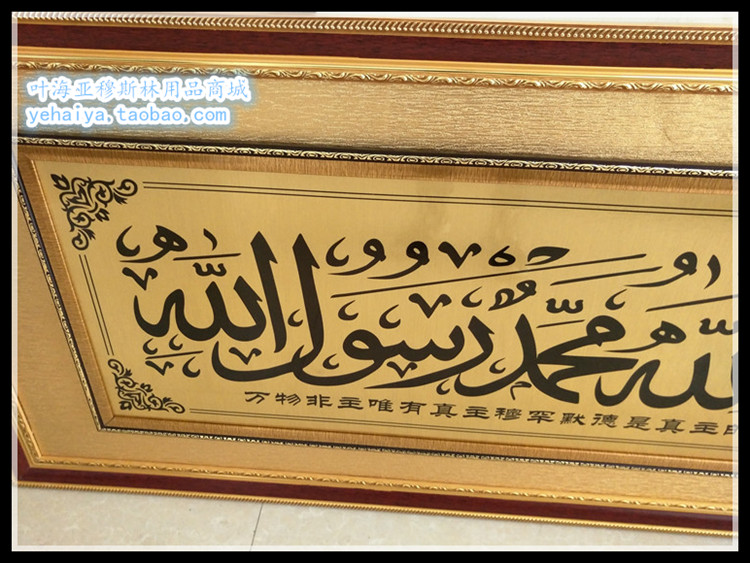 叶海亚穆斯林用品商城
yehaiya.taobao.com
لله محمد رسول الله
万物非主唯有真主穆罕默德是真主